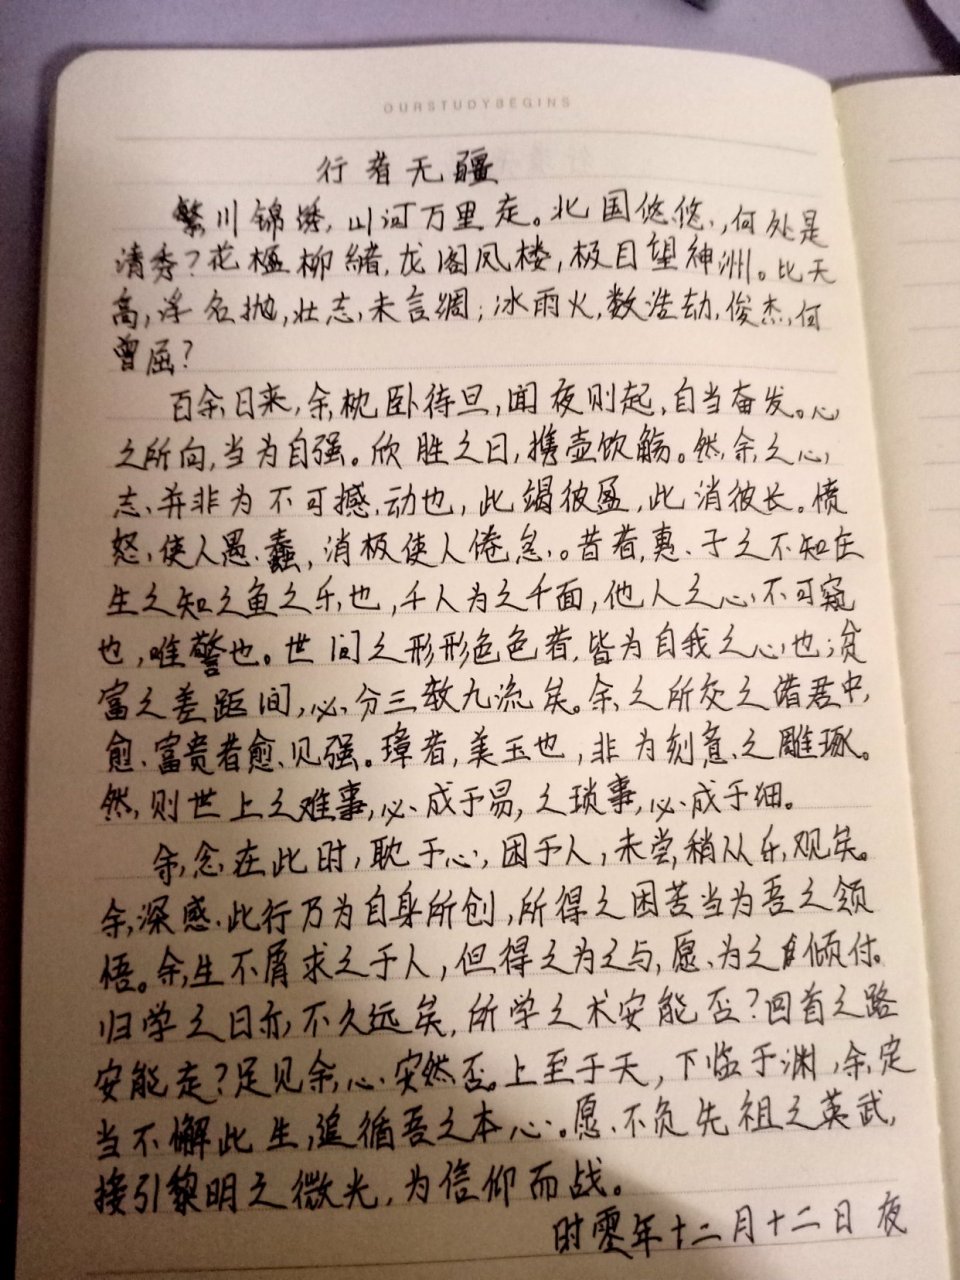 OURSTUDYBEGINS
行者无疆
繁川锦绣,山河万里走。北国悠悠,何处是
清秀?花楹柳绪,龙阁凤楼,极目望神洲。比天
高,浮名抛,壮志,未言绸;冰雨火,数浩劫,俊杰,何
曾屈?
百余日来,余枕卧待旦,闻夜则起,自当奋发。心
之所向,当为自强。欣胜之日,携壶饮觞。然,余之心
志,并非为不可撼动也,此竭彼盈,此消彼长。愤
怒使人愚蠢,消极使人倦怠。昔者,惠子之不知在
生之知之鱼之乐也,千人为之千面,他人之心不可窥
也,唯警也。世间之形形色色者,皆为自我之心也;贫
富之差距间,必分三教九流矣。余之所交之诸君中,
愈富贵者愈见强。璋者,美玉也,非为刻意之雕琢。
然,则世上之难事,必成于易,之琐事,必成于细。
余念在此时,耽于心,困于人,未尝稍从乐观矣。
余深感此行乃为自身所创,所得之困苦当为吾之领
悟。余生不屑求之于人,但得之为之与,愿为之倾付。
归学之日亦不久远矣,所学之术安能否?回首之路
安能走?足见余心突然否。上至于天,下临于渊,余定
当不懈此生,追循吾之本心。愿不负先祖之英武,
接引黎明之微光,为信仰而战。
时零年十二月十二日 夜